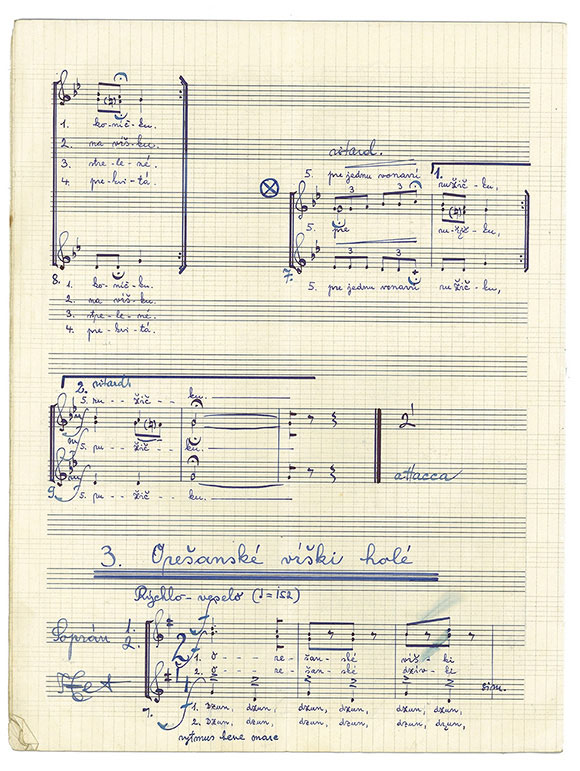 1. ko-níč-ku.
2. na víš-ku.
3. stre-le-né.
4. pre-kvi-tá.
8. 1. ko-níč-ku.
2. na víš-ku.
3. stre-le-né.
4. pre-kvi-tá.
ritard.
5. pre jednu vonavú ružič-ku,
1.
3 3
5. pre ru-žič-ku,
3 3
7. 5. pre jednu vonavú ružič-ku,
2. ritard.
5. ru - - - žič - - - ku.
5. ru - - - žič - - ku.
9. 5. ru - - - žič - - ku.
2'
attacca
3. Orešanské víški holé
Rýchlo - veselo (♩=152)
Soprán 1.
2.
1. O - - - - re - žan - ské víš - ki
2. O - - - - re - žan - ské dziv - ki
sim.
1. Dzun, dzun, dzun, dzun, dzun, dzun,
2. Dzun, dzun, dzun, dzun, dzun, dzun,
rytmus bene marc